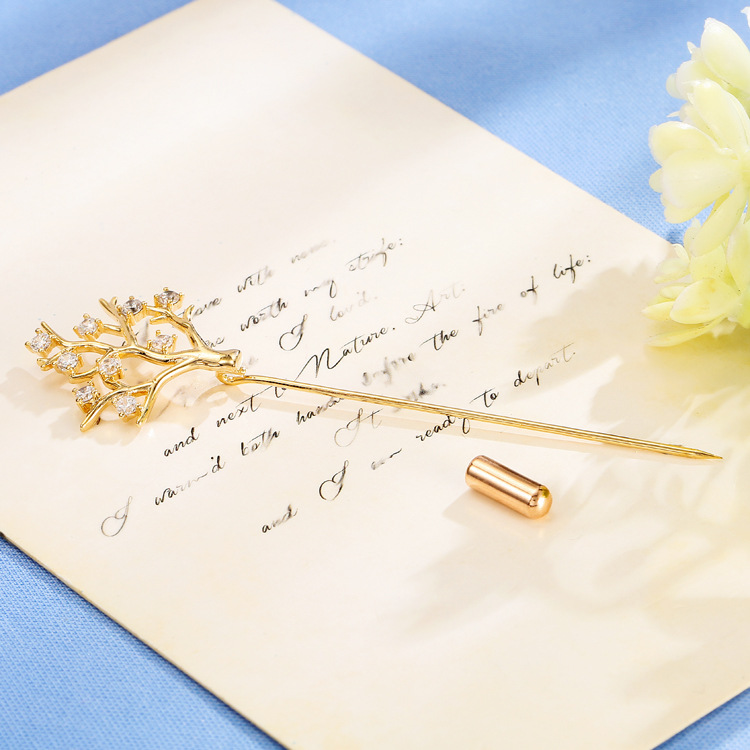 ove with none
worth my strife:
I lov'd.
and next to Nature, Art:
I warm'd both hands before the fire of life:
It
and I am ready to depart.